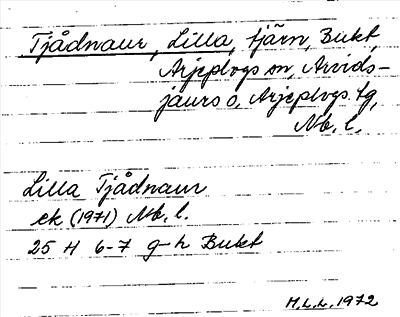 Tjådnaur, Lilla, tjärn, Bukt,
Arjeplogs sn, Arvids-
jaurs o, Arjeplogs tg,
Nb. l.
Lilla Tjådnaur
ek (1971) Nb. l.
25 H 6-7 g-h Bukt
M.L.L. 1972